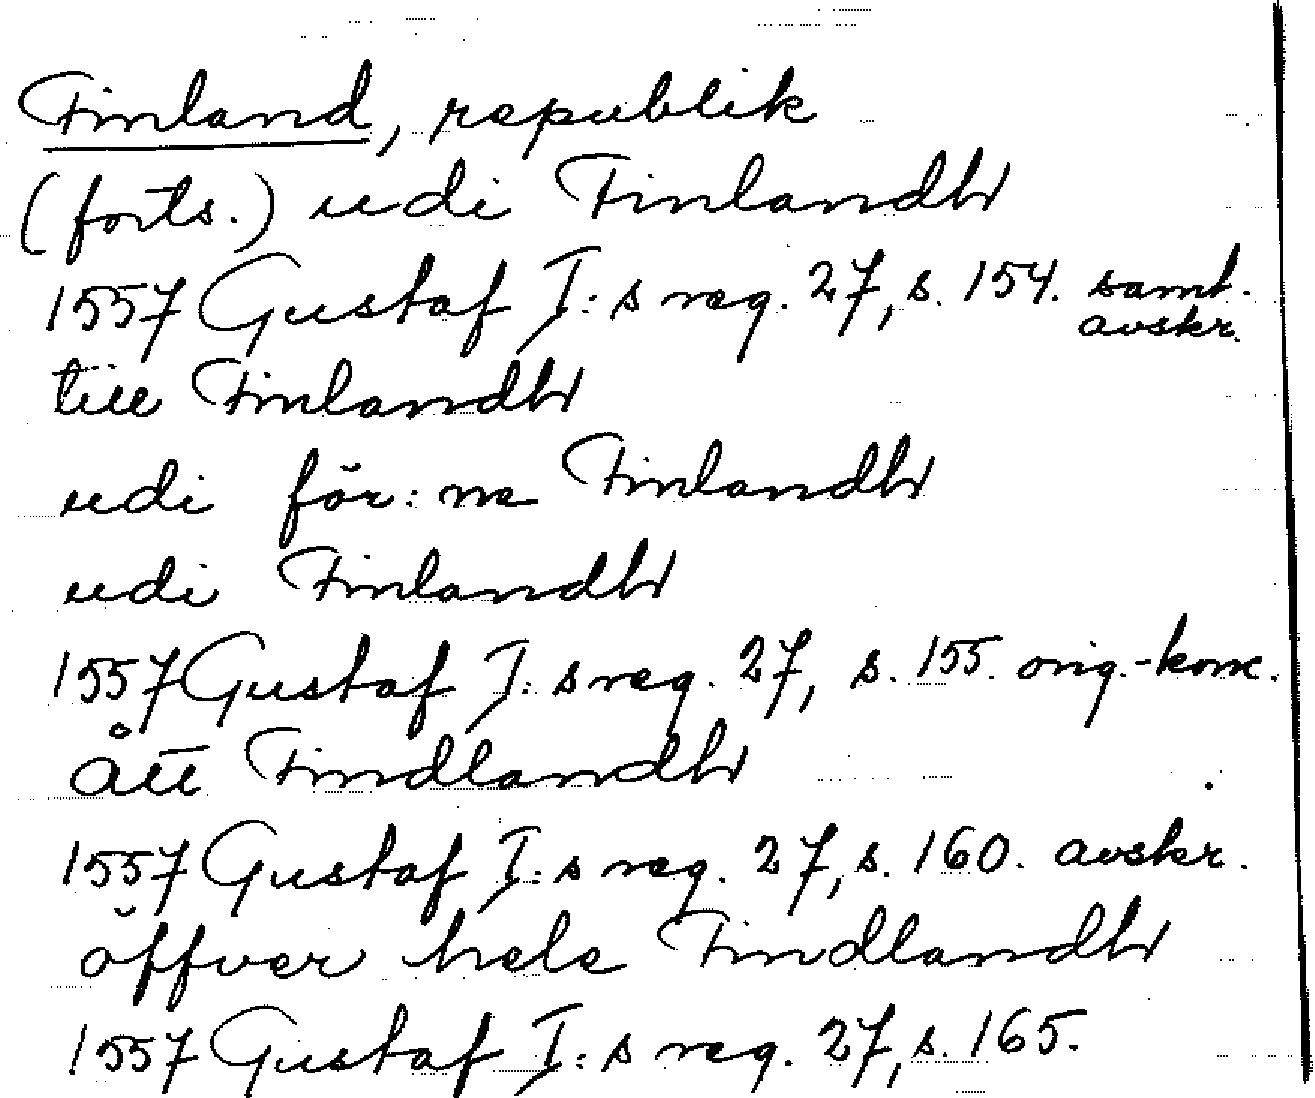 Finland, republik
(forts.) udi Finlandh
1557 Gustaf I:s reg. 27, s. 154. samt. avskr.
till Finlandh
udi för:ne Finlandh
udi Finlandh
1557 Gustaf I:s reg. 27, s. 155. orig.-konc.
ått Findlandh
1557 Gustaf I:s reg. 27, s. 160. avskr.
öffver hele Findlandh
1557 Gustaf I:s reg. 27, s. 165.